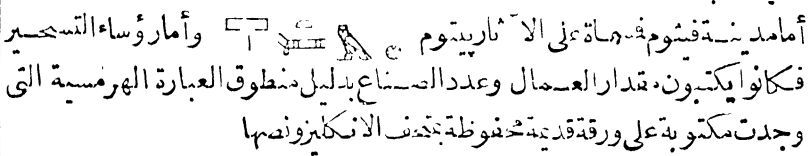 أمامدينة فيثوم فسماة على الآثار پيتوم وأمار ؤساء التسخير
فكانوا يكتبون مقدار العمال وعدد الصناع بدليل منطوق العبارة الهرمسية التى
وجدت مكتوبة على ورقة قديمة محفوظة بمتحف الانكليز ونصها